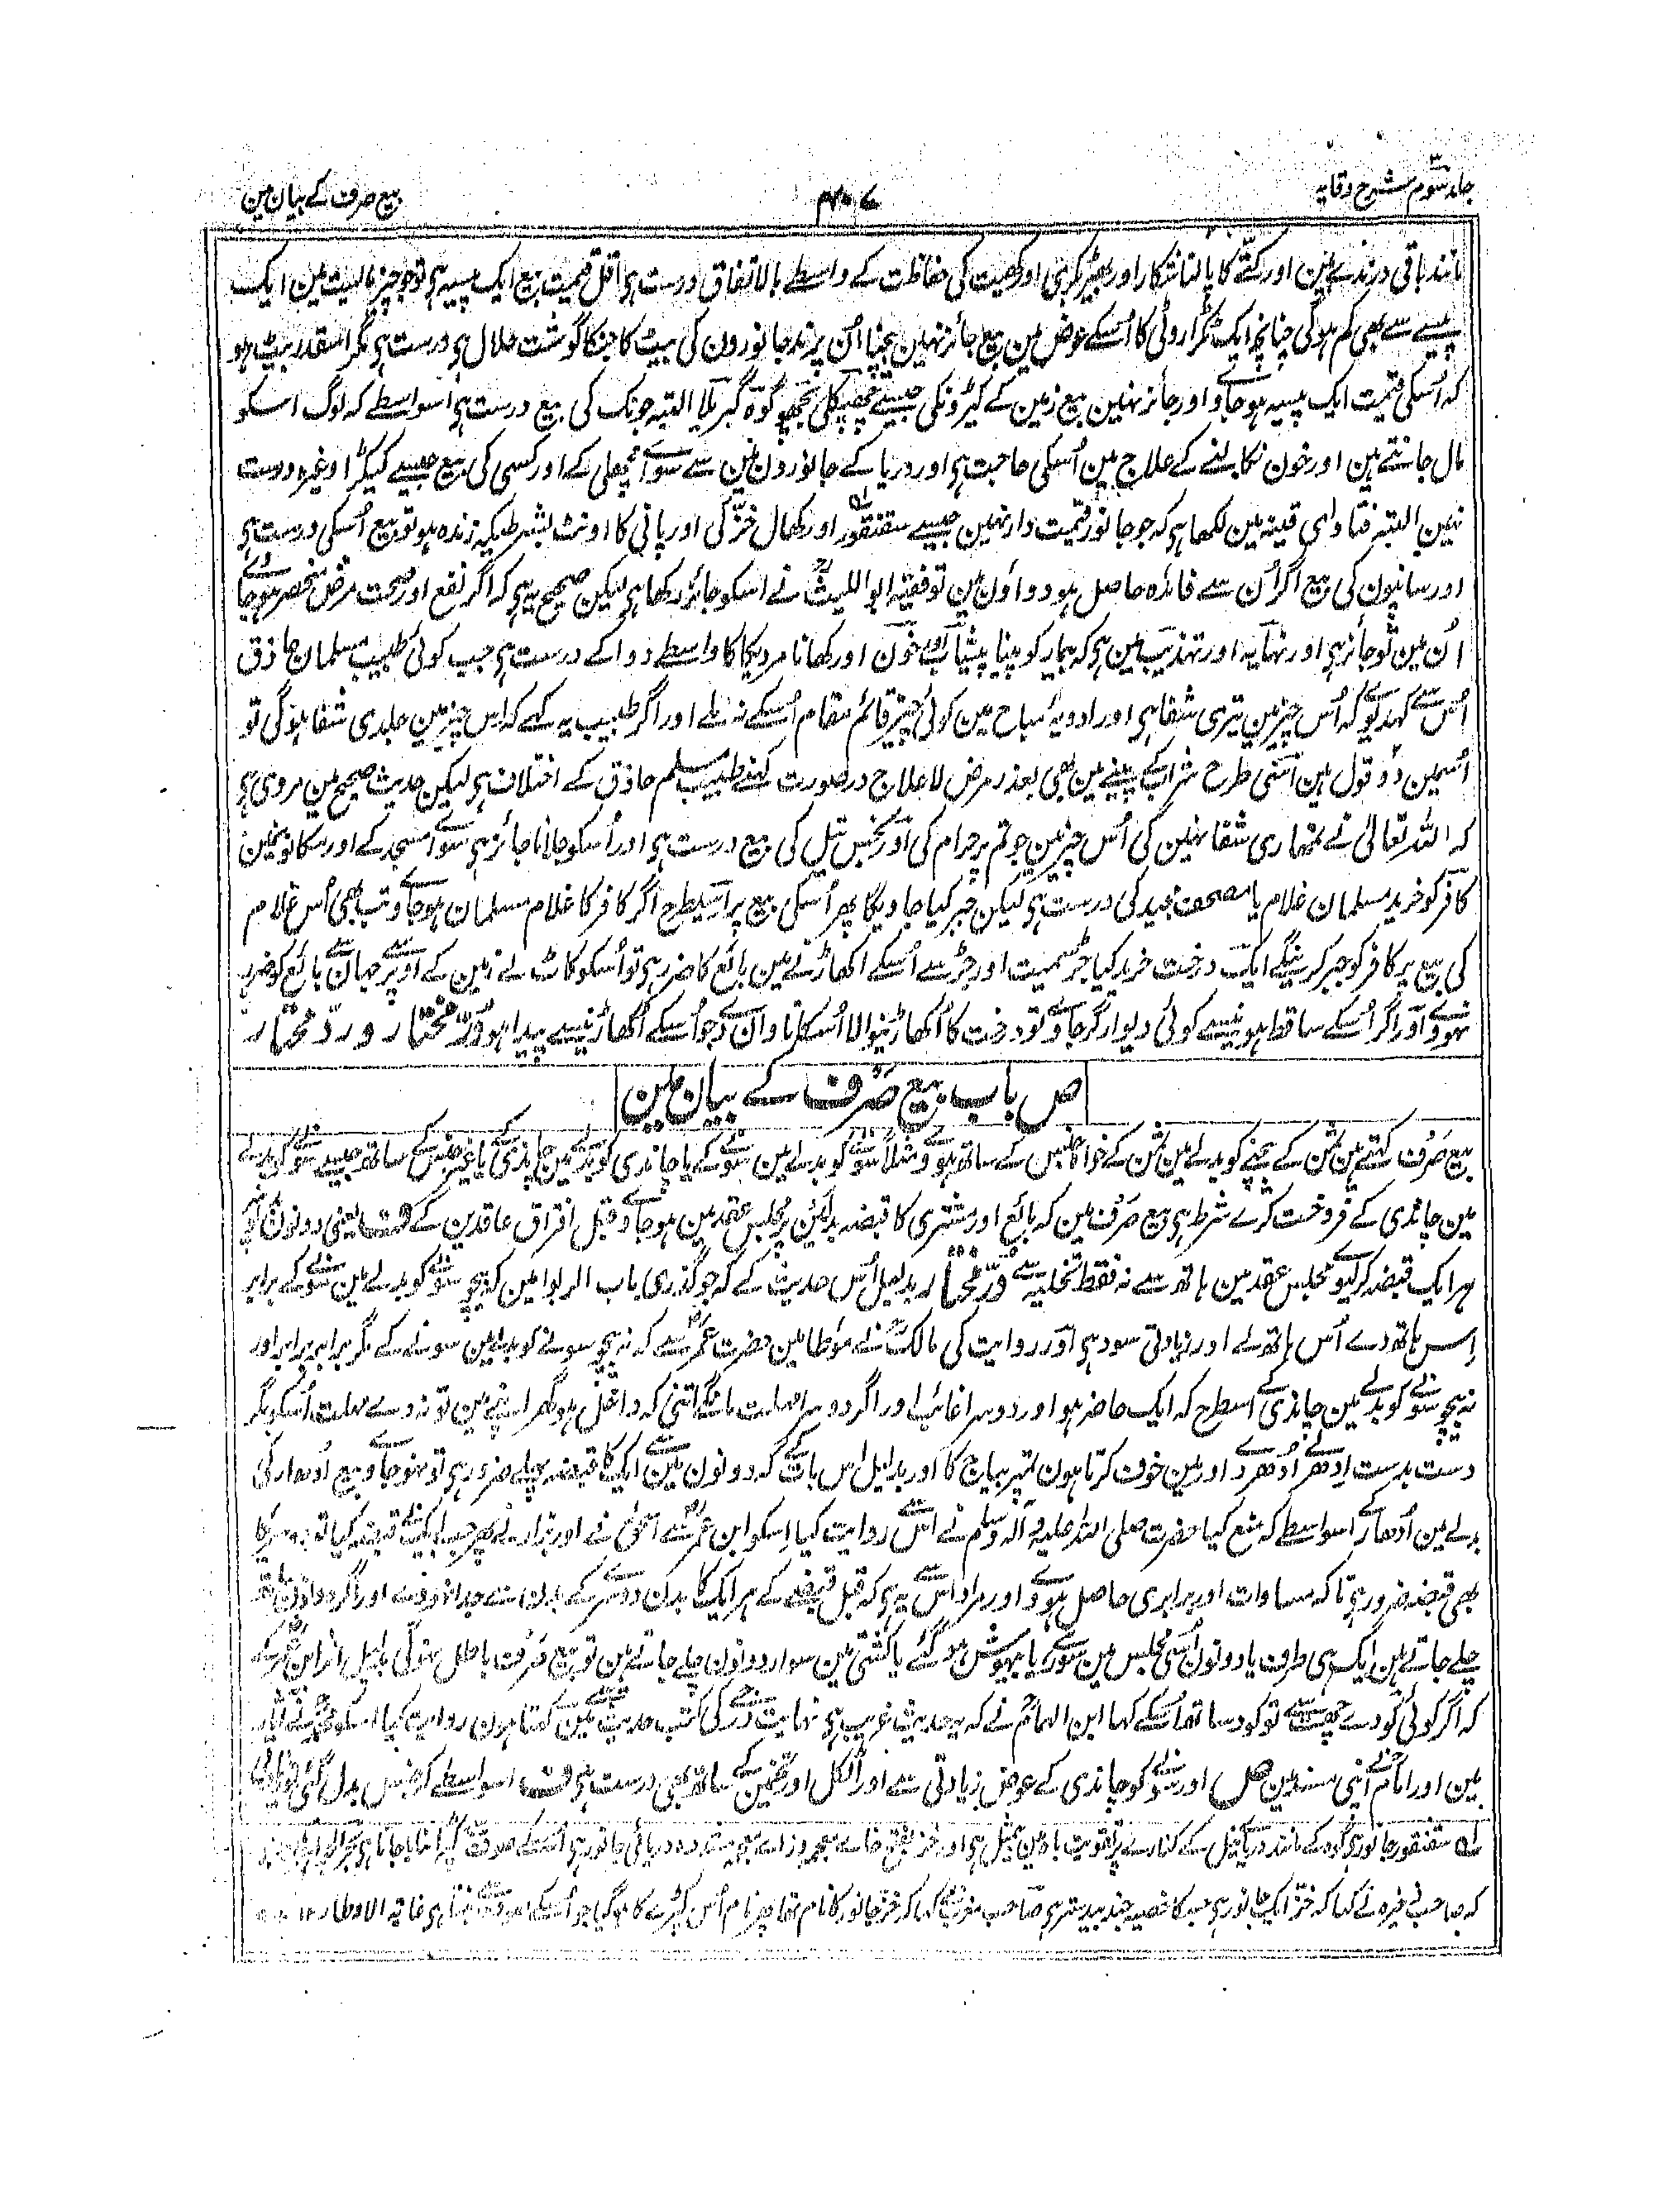 جلد سوم شرح وقایہ
۴۰۷
بیع صرف کے بیان مین
مانند باقی درندے ہین اور کتّے کا پالنا شکار اور بھیڑ بکری اور کھیت کی حفاظت کے واسطے بالاتفاق درست ہی اقل قیمت بیع ایک پیسہ ہی تو جو چیز مالیت مین ایک
پیسے سے بھی کم ہوگی چنانچہ ایک ٹکڑا روٹی کا اُسکے عوض مین بیع جائز نہین بیچنا اُن پرند جانورون کی بیٹ کا جنکا گوشت حلال ہی درست ہی مگر اسقدر بیٹ ہو
کہ اُسکی قیمت ایک پیسہ ہوجاوے اور جائز نہین بیع زمین کے کیڑونکی جیسے چھپکلی بچھو گوہ گبریلا البتہ جونک کی بیع درست ہی اسواسطے کہ لوگ اسکو
مال جانتے ہین اور خون نکالنے کے علاج مین اُسکی حاجت ہی اور دریا کے جانورون مین سے سوائے مچھلی کے اور کسی کی بیع جیسے کیکڑا وغیرہ درست
نہین البتہ فتاوای قنیہ مین لکھا ہی کہ جو جانور قیمت دار نہین جیسے سقنقور اور کھال خزّ کی اور پانی کا اونٹ بشرطیکہ زندہ ہو تو بیع اُسکی درست ہی
اور سانپون کی بیع اگر اُن سے فائدہ حاصل ہو دواؤن مین تو فقیہ ابو اللیثؒ نے اسکو جائز رکھا ہی لیکن صحیح یہ ہی کہ اگر نفع اور صحت مرض منحصر ہوجائے
اُن مین تو جائز ہی اور نہایہ اور تہذیب مین ہی کہ بیمار کو پینا پیشاب اور خون اور کھانا مردیکا واسطے دوا کے درست ہی جب کوئی طبیب مسلمان حاذق
اُس سے کہدیوے کہ اُس چیز مین تیری شفا ہی اور ادویۂ مباح مین کوئی چیز قائم مقام اُسکے نہ ملے اور اگر طبیب یہ کہے کہ اس چیز مین جلدی شفا ہوگی تو
اُسمین دو قول ہین اسی طرح شراب کے پینے مین بھی بعذر مرض لاعلاج در صورت کہنے طبیب مسلم حاذق کے اختلاف ہی لیکن حدیث صحیح مین مروی ہی
کہ اللہ تعالیٰ نے تمھاری شفا نہین کی اُس چیز مین جو تم پر حرام کی اور نجس تیل کی بیع درست ہی اور اُسکو جلانا جائز ہی سوائے مسجد کے اور مکانو نمین
کافر کو خرید مسلمان غلام یا مصحف مجید کی درست ہی لیکن جبر کیا جاویگا پھر اُسکی بیع پر اسیطرح اگر کافر کا غلام مسلمان ہوجاوے تب بھی اُس غلام
کی بیع پر کافر کو جبر کرینگے ایک درخت خرید کیا جڑ سمیت اور جڑ سے اُسکے اکھاڑنے مین بائع کا ضرر ہی تو اُسکو کاٹ لے زمین کے اوپر جہان سے بائع کو ضرر
نہووے اور اگر اُسکے ساقط ہونیسے کوئی دیوار گرجاوے تو درخت کا اُکھاڑنیوالا اُسکا تاوان دے جو اُسکے اُکھاڑنیسے پیدا ہو درّ مختار و ردّ محتار
ص باب بیع صرف کے بیان مین
بیع صرف کہتے ہین ثمن کے بیچنے کو بدلے مین ثمن کے خواہ جنس کے ساتھ ہووے مثلاً سونے کو بدلے مین سونے کے یا چاندی کو بدلے مین چاندی کے یا غیر جنس کے ساتھ جیسے سونے کو بدلے
مین چاندی کے فروخت کرے شرط ہی بیع صرف مین کہ بائع اور مشتری کا قبضہ بدلین پر مجلس عقد مین ہوجاوے قبل افتراق عاقدین کے ف یعنی دونون
ہر ایک قبضہ کرلیوے مجلس عقد مین ہاتھ سے نہ فقط تخلیہ سے درّ مختار بدلیل اُس حدیث کے کہ جو گذری باب الربوا مین کہ بیچو سونے کو بدلے مین سونے کے برابر
اِس ہاتھ دے اُس ہاتھ لے اور زیادتی سود ہی اور روایت کی مالکؒ نے موطا مین حضرت عمرؓ سے کہ نہ بیچو سونے کو بدلے مین سونے کے مگر برابر برابر اور
نہ بیچو سونے کو بدلے مین چاندی کے اسطرح کہ ایک حاضر ہو اور دوسرا غائب اور اگر دوسرا مہلت مانگے اتنی کہ داخل ہو گھر اپنے مین تو نہ دے مہلت اُسکو مگر
دست بدست اِدھر لے اُدھر دے اور مین خوف کرتا ہون تمپر بیاج کا اور بدلیل اس بات کے کہ دونون مین سے ایک کا قبضہ پہلے ضرور ہی تو نہوجاوے بیع اُدھار کی
بدلے مین اُدھار کے اسواسطے کہ منع کیا حضرت صلی اللہ علیہ وآلہ وسلم نے اس سے روایت کیا اِسکو ابن عمرؓ سے اسحٰق نے اور بزار نے پھر جب ایک نے قبضہ کیا تو دوسریکا
بھی قبضہ ضرور ہی تاکہ مساوات اور برابری حاصل ہووے اور مراد اس سے یہ ہی کہ قبل قبضے کے ہر ایک کا بدن دوسرے کے بدن سے جدا نہووے اور اگر دونون
چلے جاتے ہین ایک ہی طرف یا دونون اُسی مجلس مین سوگئے یا بیہوش ہوگئے یا کشتی مین سوار دونون چلے جاتے ہین تو بیع صرف باطل نہوگی بدلیل اثر ابن عمرؓ کے
کہ اگر کوئی کودے چھت سے تو کود ساتھ اُسکے کہا ابن الہمامؒ نے کہ یہ حدیث غریب ہی نہایت درجے کی کتب حدیث مین کہتا ہون روایت کیا اسکو محمدؒ نے آثار
مین اور امامؒ نے اپنی مسند مین ص اور سونے کو چاندی کے عوض زیادتی سے اور اٹکل اور تخمین کے ساتھ بھی درست ہی ف اسواسطے کہ جنس بدل گئی
سقنقور جانور ہی گوہ کے مانند دریائے نیل کے کنارے پر تقویت باہ مین بیمثل ہی اور خز بفتح خائے معجمہ وزائے معجمہ مشددہ دریائی جانور ہی اُسکے صوف سے کپڑا بنایا جاتا ہی
کہ صاحب ذخیرہ نے کہا کہ خزّ ایک جانور ہی جسکا خصیہ جندبیدستر ہی صاحب مغرب نے کہا کہ خز جانور کا نام تھا پھر نام اُس کپڑے کا ہوگیا جو اُسکے صوف سے بنتا ہی غایۃ الاوطار